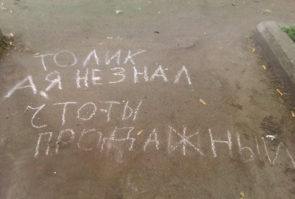 ТОЛИК
А, Я НЕ ЗНАЛ
ЧТО ТЫ
ПРОДАЖНЫЙ